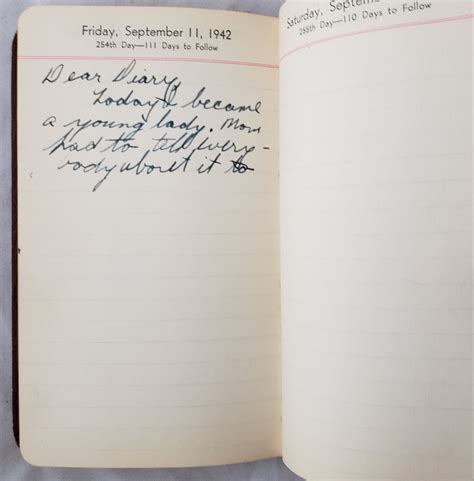 Friday, September 11, 1942
254th Day—111 Days to Follow
Dear Diary,
Today I became
a young lady. Mom
had to tell every-
body about it to
Saturday, Septem
255th Day—110 Days to Follow